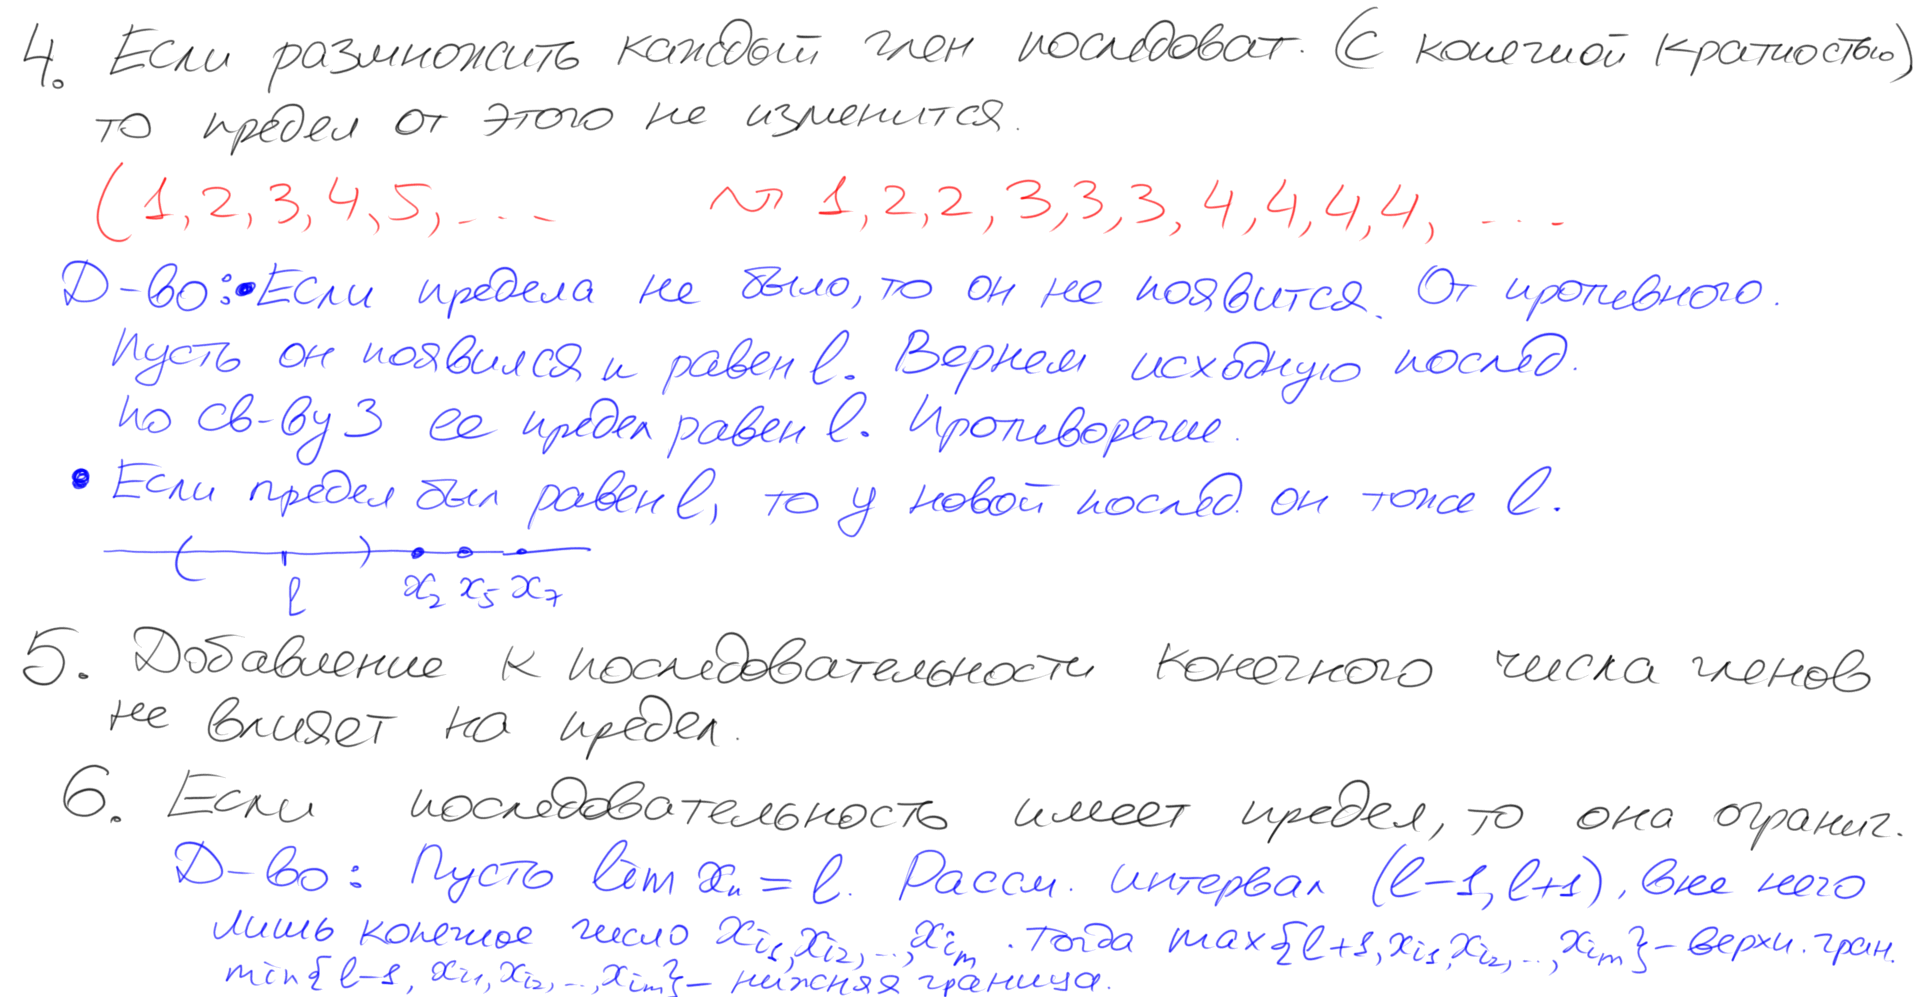 4. Если размножить каждый член последоват. (с конечной кратностью)
то предел от этого не изменится.
(1, 2, 3, 4, 5, ... ⇝ 1, 2, 2, 3, 3, 3, 4, 4, 4, 4, ...
Д-во: • Если предела не было, то он не появится. От противного.
Пусть он появился и равен l. Вернем исходную послед.
По св-ву 3 ее предел равен l. Противоречие.
• Если предел был равен l, то у новой послед. он тоже l.
( l ) x₂ x₅ x₇
5. Добавление к последовательности конечного числа членов
не влияет на предел.
6. Если последовательность имеет предел, то она огранич.
Д-во: Пусть lim xₙ = l. Рассм. интервал (l-1, l+1), вне него
лишь конечное число x_{i1}, x_{i2}, ..., x_{im}. Тогда max{l+1, x_{i1}, x_{i2}, ..., x_{im}} – верхн. гран.
min{l-1, x_{i1}, x_{i2}, ..., x_{im}} – нижняя граница.